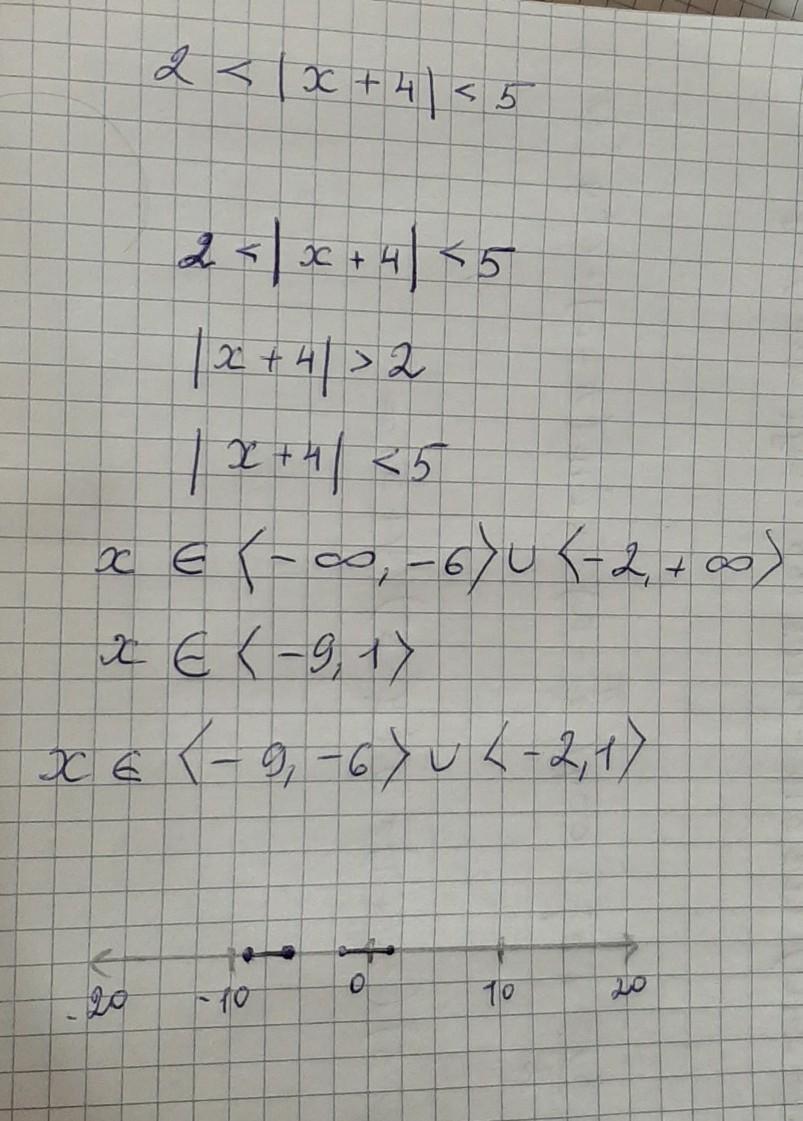 2 < |x + 4| < 5
2 < |x + 4| < 5
|x + 4| > 2
|x + 4| < 5
x ∈ ⟨-∞, -6⟩ ∪ ⟨-2, +∞⟩
x ∈ ⟨-9, 1⟩
x ∈ ⟨-9, -6⟩ ∪ ⟨-2, 1⟩
-20 -10 0 10 20